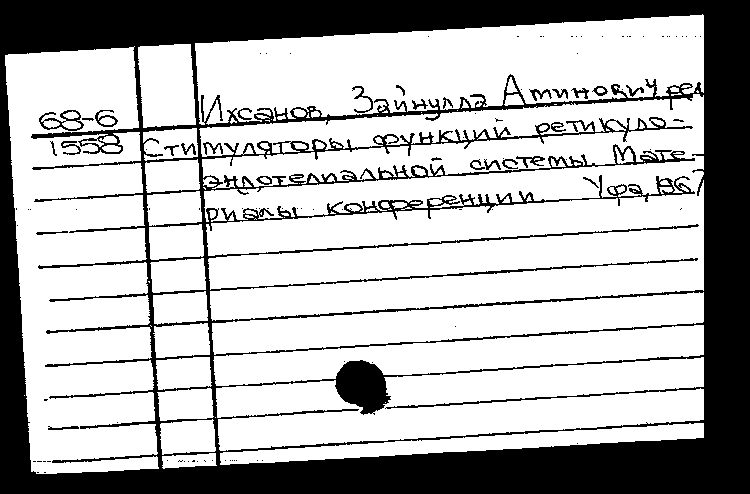 68-6 Ихсанов, Зайнулла Аминович ред
1558 Стимуляторы функций ретикуло-
эндотелиальной системы. Мате-
риалы конференции. Уфа, 1967